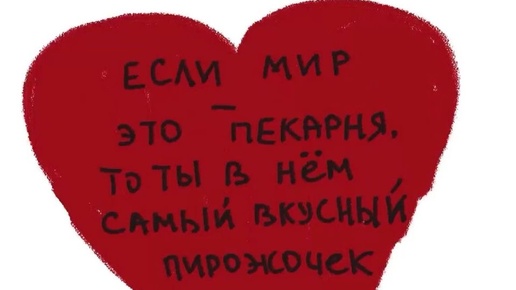 ЕСЛИ МИР
ЭТО – ПЕКАРНЯ.
ТО ТЫ В НЁМ
САМЫЙ ВКУСНЫЙ
ПИРОЖОЧЕК